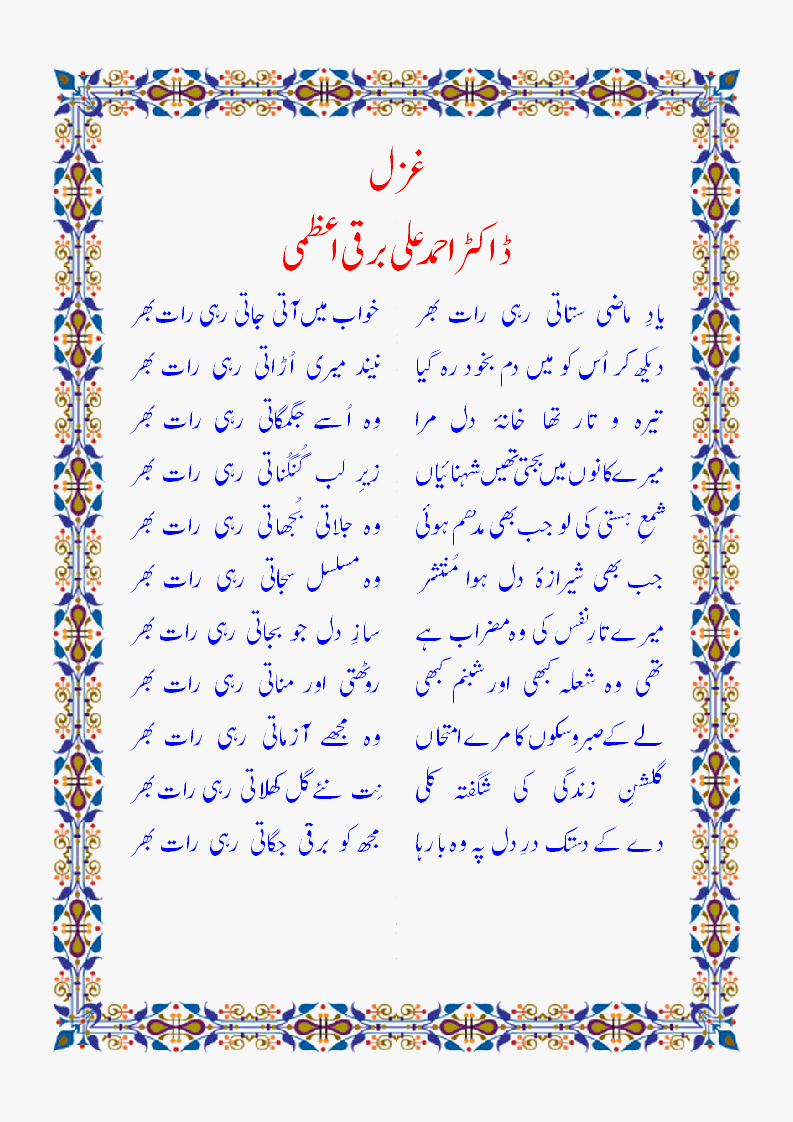 غزل
ڈاکٹر احمد علی برقی اعظمی
یادِ ماضی ستاتی رہی رات بھر خواب میں آتی جاتی رہی رات بھر
دیکھ کر اُس کو میں دم بخود رہ گیا نیند میری اُڑاتی رہی رات بھر
تیرہ و تار تھا خانۂ دل مرا وہ اُسے جگمگاتی رہی رات بھر
میرے کانوں میں بجتی تھیں شہنائیاں زیرِ لب گُنگُناتی رہی رات بھر
شمعِ ہستی کی لو جب بھی مدھم ہوئی وہ جلاتی بُجھاتی رہی رات بھر
جب بھی شیرازۂ دل ہوا مُنتشر وہ مسلسل سجاتی رہی رات بھر
میرے تارِ نفس کی وہ مضراب ہے سازِ دل جو بجاتی رہی رات بھر
تھی وہ شعلہ کبھی اور شبنم کبھی روٹھتی اور مناتی رہی رات بھر
لے کے صبر و سکوں کا مرے امتحاں وہ مجھے آزماتی رہی رات بھر
گلشنِ زندگی کی شگفتہ کلی نِت نئے گل کھلاتی رہی رات بھر
دے کے دستک درِ دل پہ وہ بارہا مجھ کو برقی جگاتی رہی رات بھر